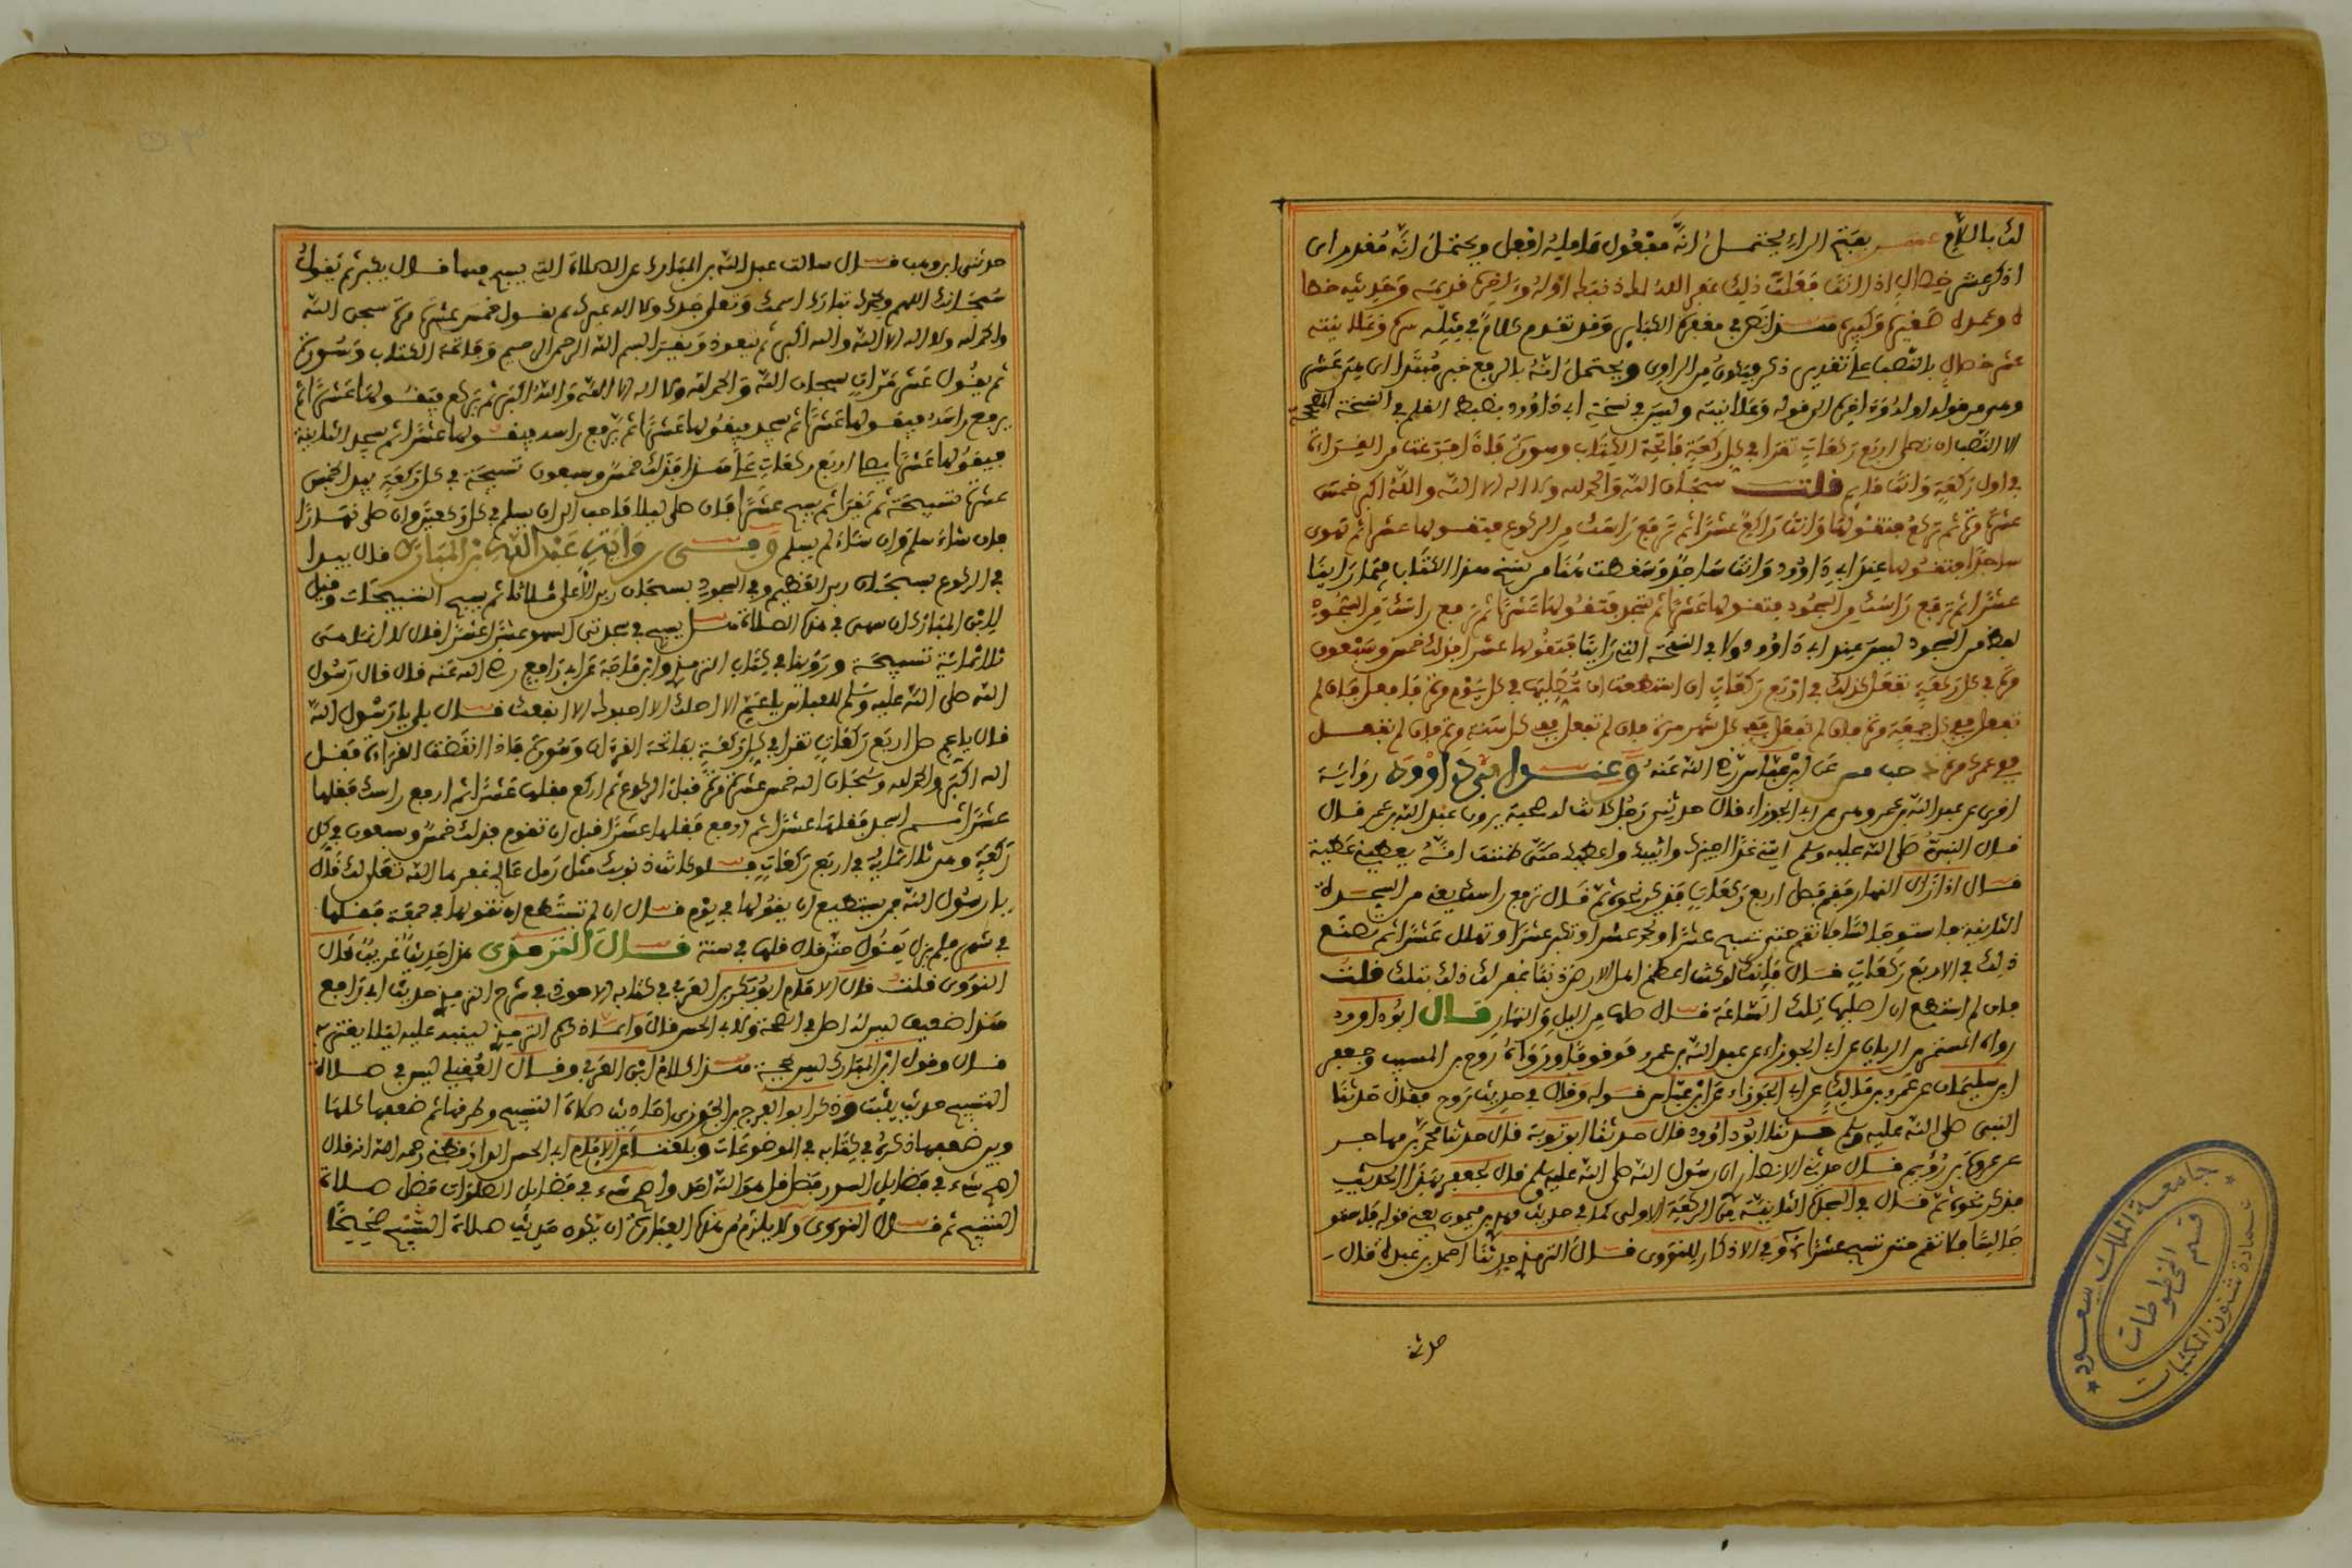 لك بالله عشر بفتح الراء يحتمل انه مفعول عامله افعل ويحتمل انه مفدر اى
اذكر عشر خصال اذا انت فعلت ذلك غفر الله لك ذنبك اوله وءاخره فديمه وحديثه خطاه
وعمده صغيره وكبيره هنا فى بعض الكتاب وفد تفدم كلام فى مثله سره وعلانيته
عشر خصال بالنصب على تفدير ذكر ويكون من الراوى ويحتمل انه بالرفع خبر مبتدا اى هذه عشر
وهى من فوله اوله وءاخره الى فوله وعلانيته وليس فى نسخة ابى داوود بضبط الفلم فى النسخة الصحيحة
الا النصب ان تصلى اربع ركعات تفرا فى كل ركعة فاتحة الكتاب وسورة فاذا فرغت من الفراءة
فى اول ركعة وانت فايم فلت سبحان الله والحمد لله ولا اله الا الله والله اكبر خمس
عشرة مرة ثم تركع فتفولها وانت راكع عشرا ثم ترفع راسك من الركوع فتفولها عشرا ثم تهوى
ساجدا فتفولها عند ابى داوود وانت ساجد وسفطت هنا من نسخ هذا الكتاب فيما راينا
عشرا ثم ترفع راسك من السجود فتفولها عشرا ثم تسجد فتفولها عشرا ثم ترفع راسك من السجود
لفظ من السجود ليس عند ابى داوود ولا فى النسخة التى راينا فتفولها عشرا فذلك خمس وسبعون
مرة فى كل ركعة تفعل ذلك فى اربع ركعات ان استطعت ان تصليها فى كل يوم مرة فافعل فان لم
تفعل ففى كل جمعة مرة فان لم تفعل ففى كل شهر مرة فان لم تفعل ففى كل سنة مرة فان لم تفعل
ففى عمرك مرة عن ابن عباس رضى الله عنه وعند ابى داوود رواية
اخرى عن عبد الله بن عمرو عن ابى الجوزاء فال حدثنى رجل كانت له صحبة يرون عبد الله بن عمر فال
فال النبى صلى الله عليه وسلم ايتنى غدا احبوك واثيبك واعطيك حتى ظننت انه يعطينى عطية
فال اذا زال النهار ففم فصل اربع ركعات فذكر نحوه ثم فال ترفع راسك يعنى من السجدة
الثانية فاستو جالسا ولا تفم حتى تسبح عشرا وتحمد عشرا وتكبر عشرا وتهلل عشرا ثم تصنع
ذلك فى الاربع ركعات فال فانك لو كنت اعظم اهل الارض ذنبا غفر لك ذلك بتلك فلت
فان لم استطع ان اصليها تلك الساعة فال صلها من الليل والنهار فال ابو داوود
رواه المستمر بن الريان عن ابى الجوزاء عن عبد الله بن عمرو موفوفا ورواه روح بن المسيب وجعفر
ابن سليمان عن عمرو بن مالك عن ابى الجوزاء عن ابن عباس فوله وفال فى حديث روح ففال حدثنا
النبى صلى الله عليه وسلم حدثنا ابو داوود فال حدثنا ابو توبة فال حدثنا محمد بن مهاجر
عن عروة بن رويم فال حدثنى الانصارى ان رسول الله صلى الله عليه وسلم فال لجعفر بهذا الحديث
فذكر نحوه ثم فال فى السجدة الثانية من الركعة الاولى كما فى حديث مهدى بن ميمون يعنى فوله فاستو
جالسا ولا تفم حتى تسبح عشرا وفى الاذكار للنووى فال الترمذى حدثنا احمد بن عبدة فال
حدثنا
حدثنى ابو وهب فال سالت عبد الله بن المبارك عن الصلاة التى يسبح فيها فال يكبر ثم يفول
سبحانك اللهم وبحمدك تبارك اسمك وتعلى جدك ولا اله غيرك ثم يفول خمس عشرة مرة سبحن الله
والحمد لله ولا اله الا الله والله اكبر ثم يتعوذ ويفرا بسم الله الرحمن الرحيم وفاتحة الكتاب وسورة
ثم يفول عشر مرات سبحان الله والحمد لله ولا اله الا الله والله اكبر ثم يركع فيفولها عشرا ثم
يرفع راسه فيفولها عشرا ثم يسجد فيفولها عشرا ثم يرفع راسه فيفولها عشرا ثم يسجد الثانية
فيفولها عشرا يصلى اربع ركعات على هذا فذلك خمس وسبعون تسبيحة فى كل ركعة يبدا بخمس
عشرة تسبيحة ثم يفرا ثم يسبح عشرا فان صلى ليلا فاحب الى ان يسلم فى كل ركعتين وان صلى نهارا
فان شاء سلم وان شاء لم يسلم وفى رواية عبد الله بن المبارك فال يبدا
فى الركوع بسبحان ربى العظيم وفى السجود بسبحان ربى الاعلى ثلاثا ثم يسبح التسبيحات وفيل
لابن المبارك ان سهى فى هذه الصلاة هل يسبح فى سجدتى السهو عشرا عشرا فال لا انما هى
ثلاثماية تسبيحة وروينا فى كتاب الترمذى وابن ماجة عن ابى رافع رضى الله عنه فال فال رسول
الله صلى الله عليه وسلم للعباس يا عم الا اصلك الا احبوك الا انفعك فال بلى يا رسول الله
فال يا عم صل اربع ركعات تفرا فى كل ركعة بفاتحة الفرءان وسورة فاذا انفضت الفراءة ففل
الله اكبر والحمد لله وسبحان الله خمس عشرة مرة فبل الركوع ثم اركع ففلها عشرا ثم ارفع راسك ففلها
عشرا ثم اسجد ففلها عشرا ثم ارفع ففلها عشرا فبل ان تفوم فذلك خمس وسبعون فى كل
ركعة وهى ثلاثماية فى اربع ركعات فلو كانت ذنوبك مثل رمل عالج غفرها الله تعلى لك فال
يا رسول الله من يستطيع ان يفولها فى يوم فال ان لم تستطع ان تفولها فى جمعة ففلها
فى شهر فلم يزل يفول حتى فال فلها فى سنة فال الترمذى هذا حديث غريب فال
النووى فلت فال الامام ابو بكر بن العربى فى كتابه الاحوذى فى شرح الترمذى حديث ابى رافع
هذا ضعيف ليس له اصل فى الصحة ولا فى الحسن فال وانما ذكره الترمذى لينبه عليه ليلا يغتر به
فال وفول ابن المبارك ليس بحجة هذا كلام ابن العربى وفال العفيلى ليس فى صلاة
التسبيح حديث يثبت وذكر ابو الفرج بن الجوزى احاديث صلاة التسبيح وطرفها ثم ضعفها كلها
وبين ضعفها ذكره فى كتابه فى الموضوعات وبلغنا عن الامام ابى الحسن الدارفطنى رحمه الله انه فال
اصح شىء فى فضايل السور فضل فل هو الله احد واصح شىء فى فضايل الصلوات فضل صلاة
التسبيح ثم فال النووى ولا يلزم من هذه العبارة ان يكون حديث صلاة التسبيح صحيحا
جامعة الملك سعود
قسم المخطوطات
عمادة شئون المكتبات